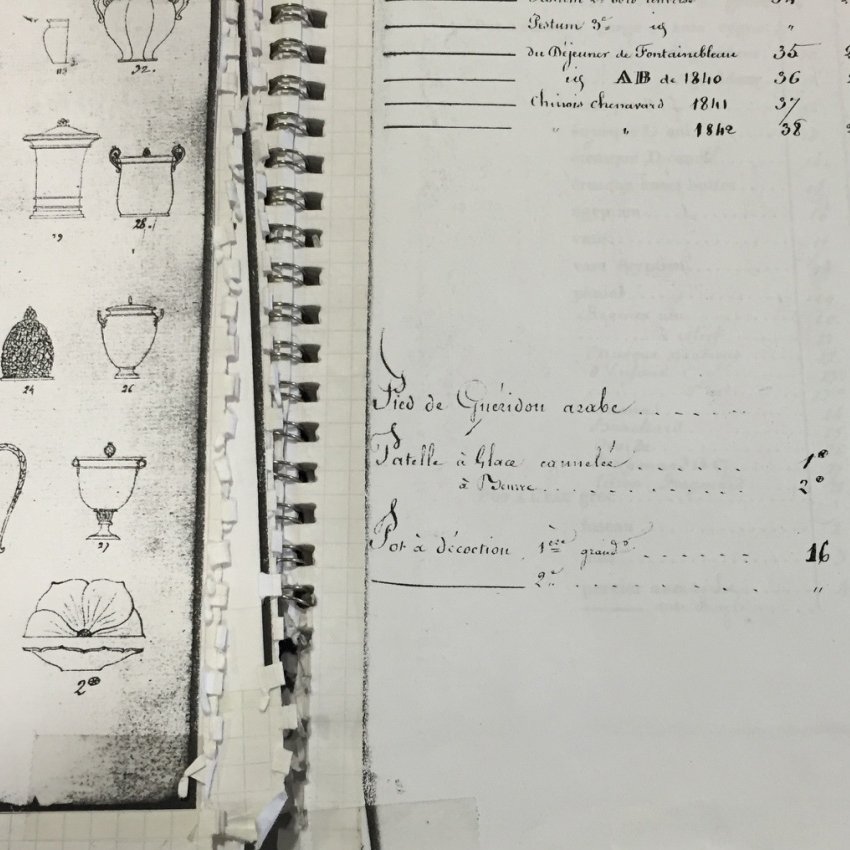 113
32.
29
28.
24
26
27
2⊕
34
Pestum 3e id "
du Déjeuner de Fontainebleau 35
id AB de 1840 36
Chinois Chenavard 1841 37
" " 1842 38
Pied de Guéridon arabe
Patelle à Glace cannelée 1⊕
à Beurre 2⊕
Pot à décoction 1ère grandr 16
2e "